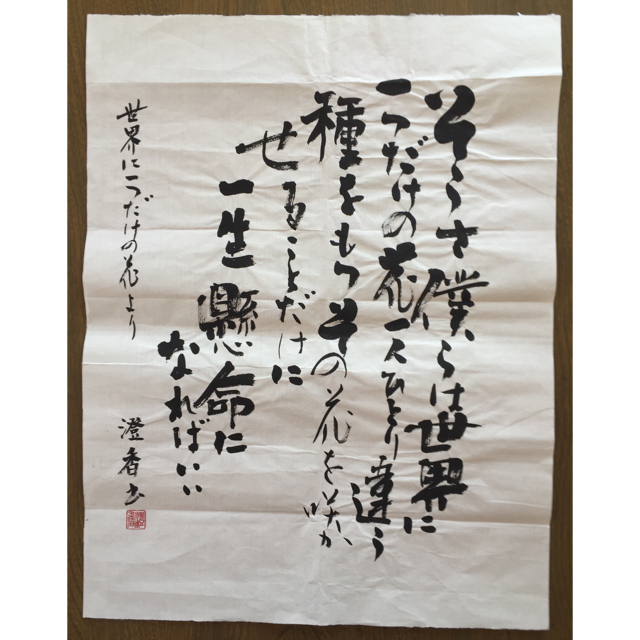 そうさ僕らは世界に
一つだけの花一人ひとり違う
種をもつその花を咲か
せることだけに
一生懸命に
なればいい
世界に一つだけの花より
澄香書